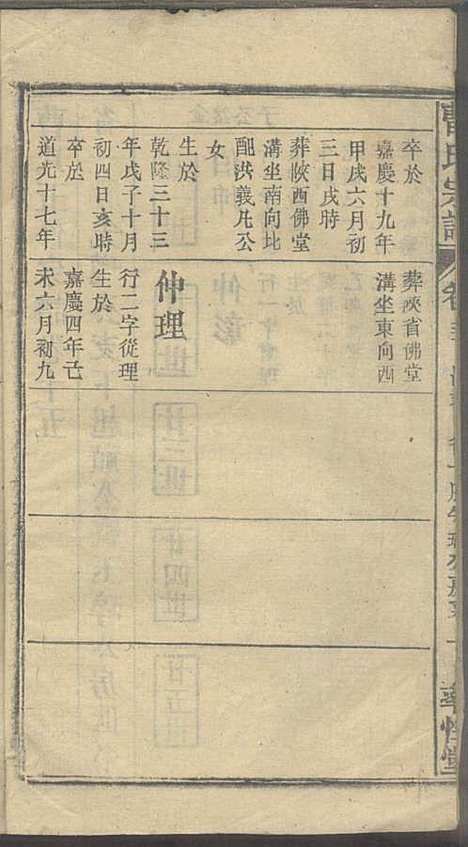 曹氏宗譜
卷
率性堂
卒於
嘉慶十九年
甲戌六月初
三日戌時
葬陜西佛堂
溝坐南向北
配洪義凡公
女
生於
乾隆三十三
年戊子十月
初四日亥時
卒於
道光十七年
葬陜省佛堂
溝坐東向西
仲理
行二字從理
生於
嘉慶四年己
未六月初九